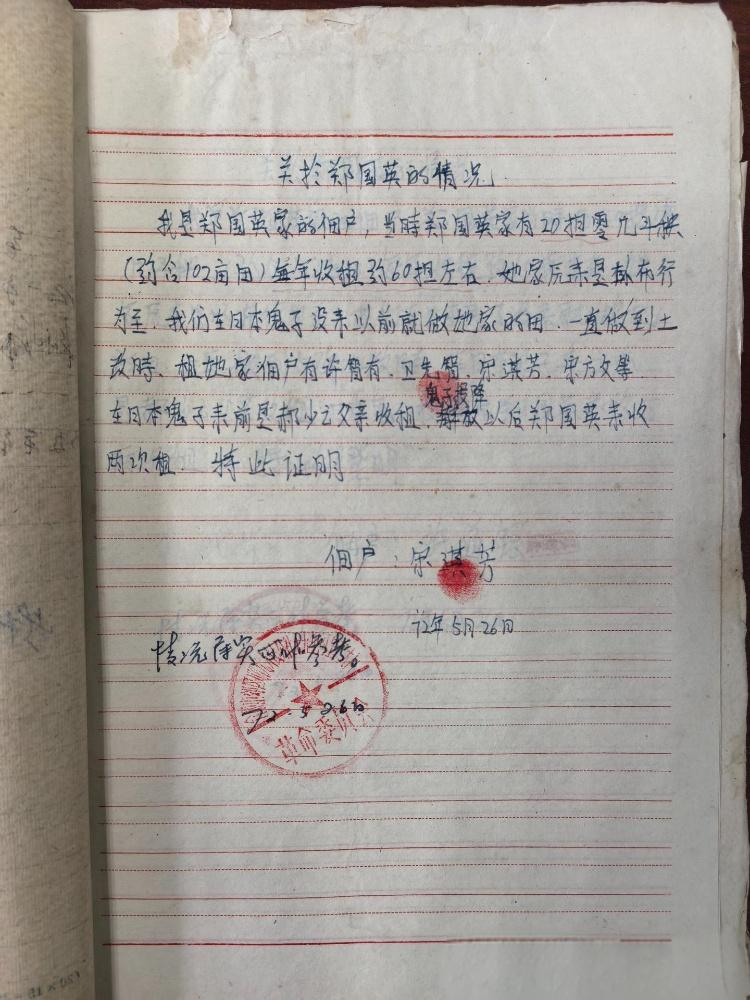 关扵郑国英的情况
我是郑国英家的佃户,当時郑国英家有20担零几斗秧
(约合102亩田)每年收租约60担左右.她家原来是 布行
为主.我们在日本鬼子没来以前就做她家的田.一直做到土
改時.租她家佃户有许智有.卫先智.宋淇芳.宋方文等.
鬼子投降
在日本鬼子来前是郝少云父亲收租.解放以后郑国英来收
两次租. 特此证明
佃户:宋淇芳
72年5月26日
情况属实可作参考。
72.5.26日
革命委员会